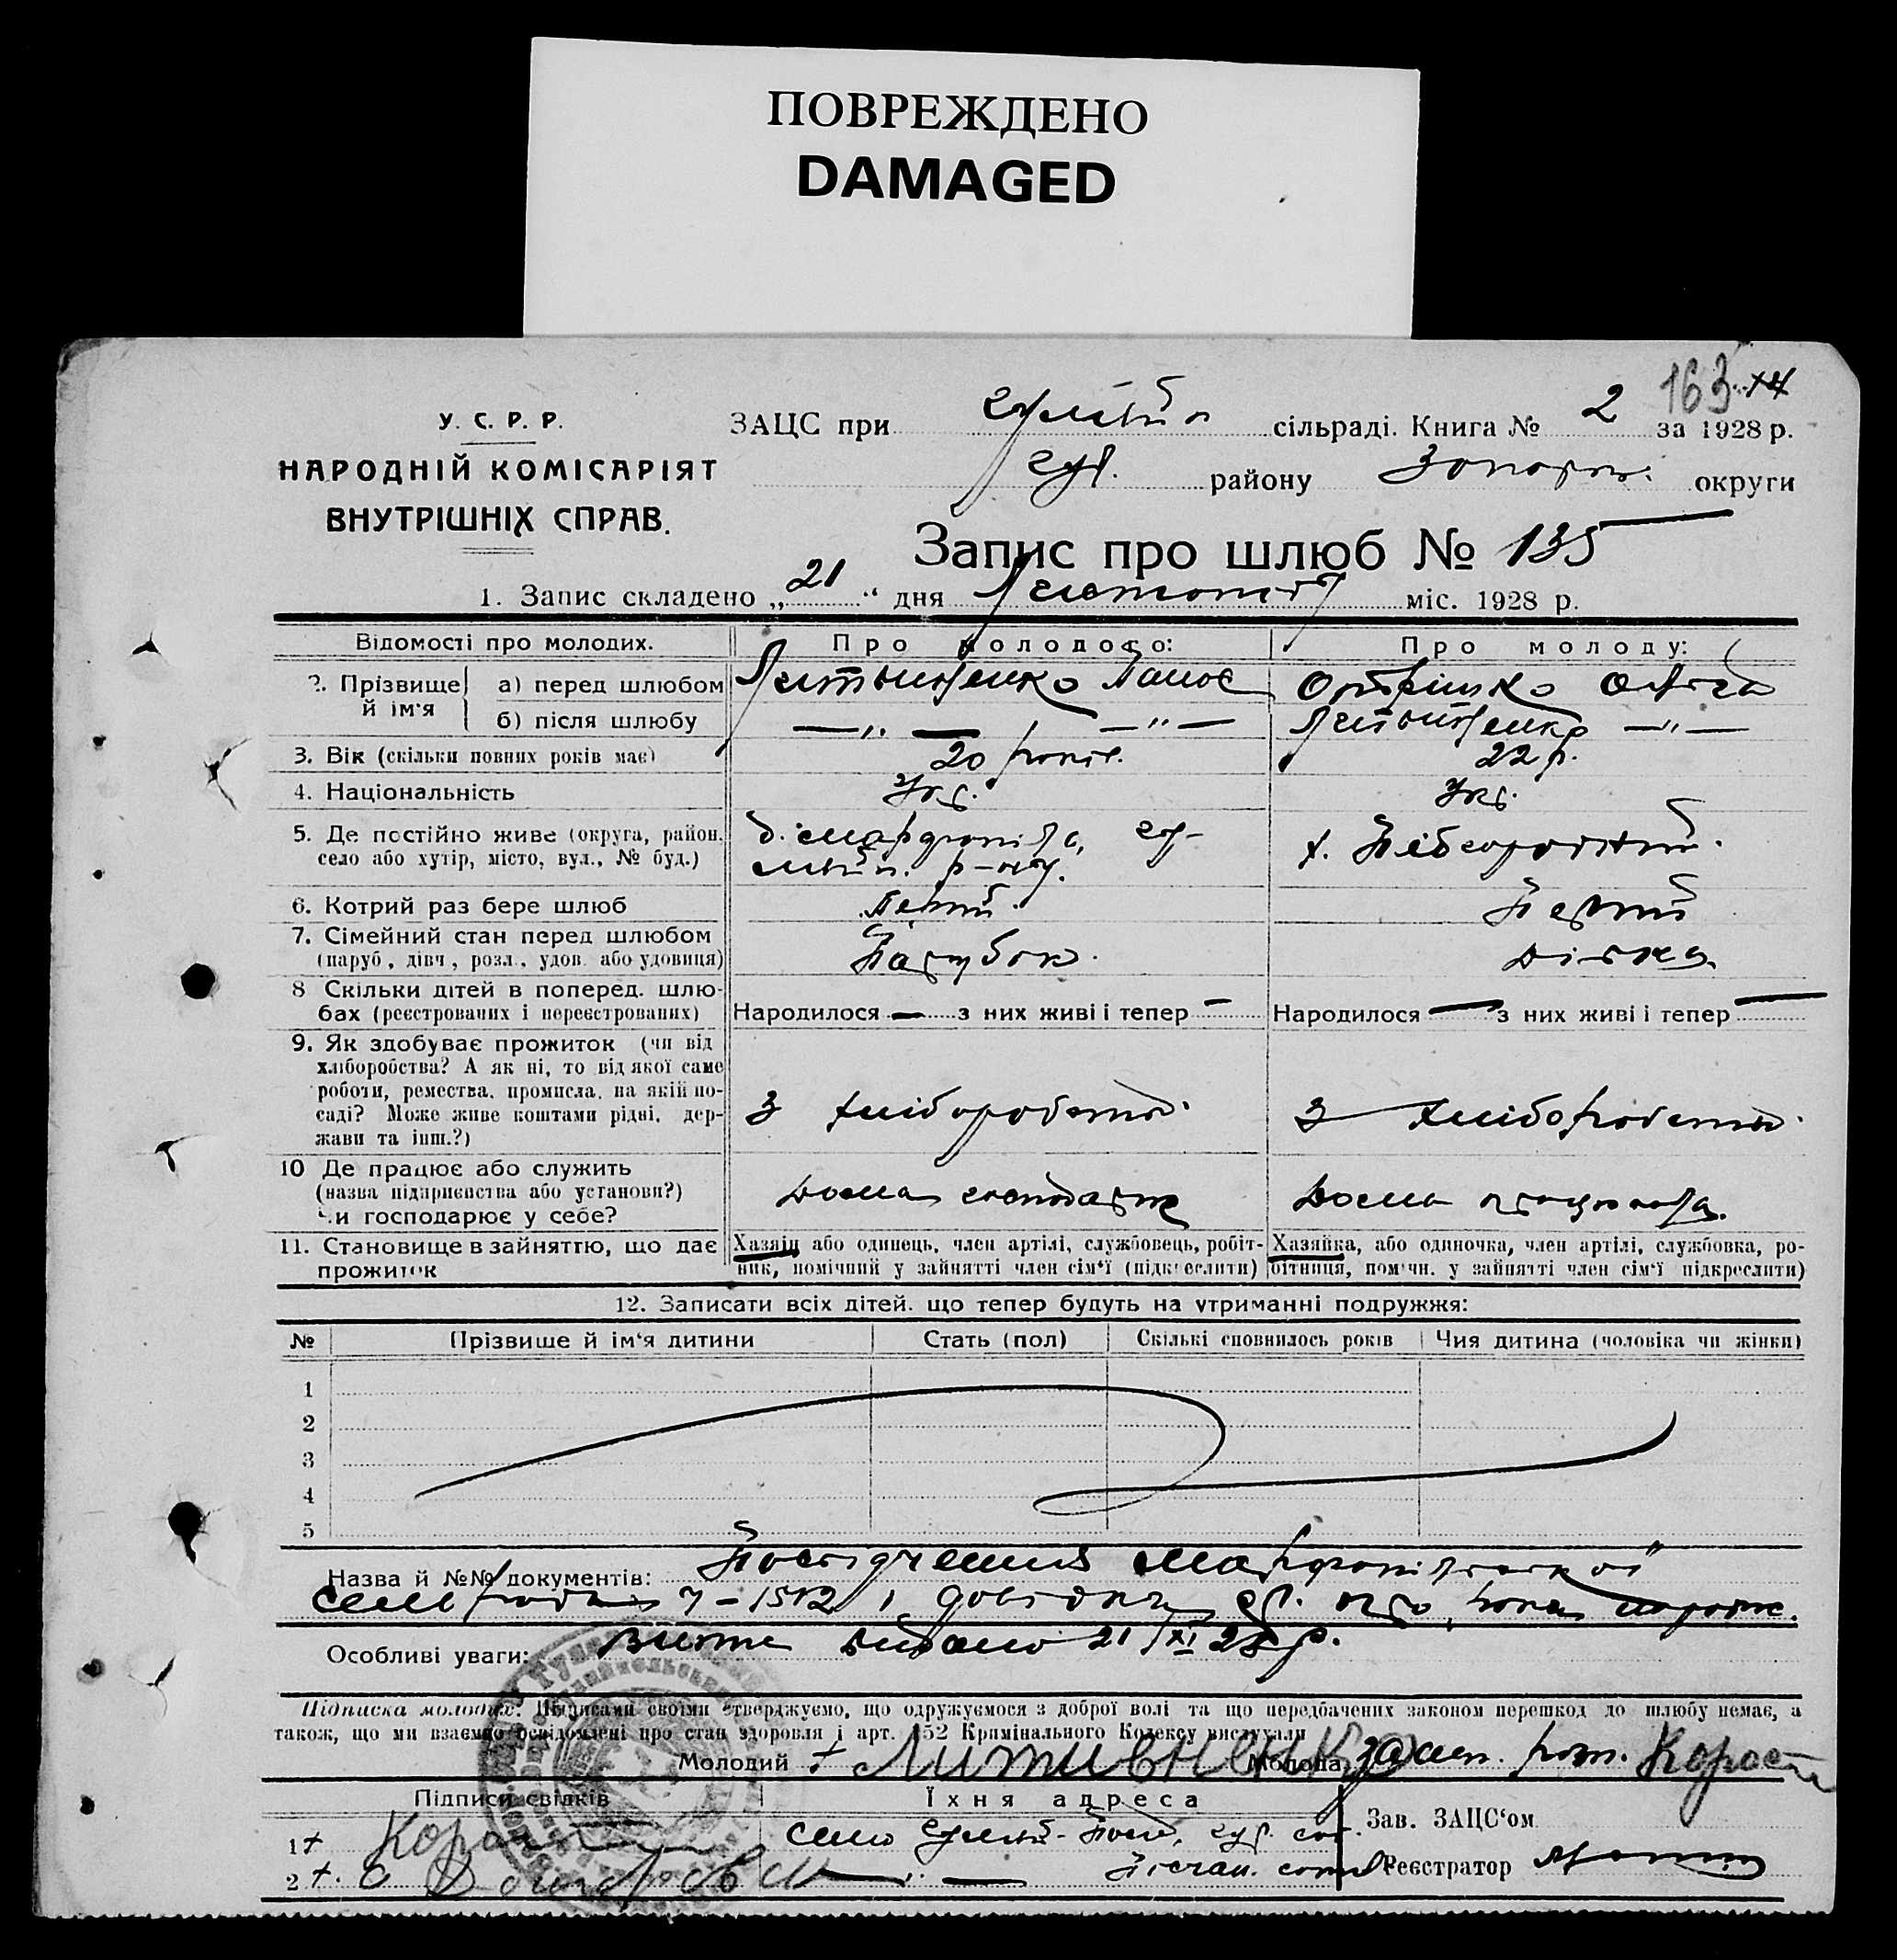 ПОВРЕЖДЕНО
DAMAGED
163
У. С. Р. Р.
НАРОДНІЙ КОМІСАРІЯТ
ВНУТРІШНІХ СПРАВ.
ЗАЦС при сільраді. Книга № 2 за 1928 р.
Гул. району Запоріз. округи
Запис про шлюб № 135
1. Запис складено „21“ дня Листопада міс. 1928 р.
Відомості про молодих. Про молодого: Про молоду:
2. Прізвище й ім'я
а) перед шлюбом Литвиненко Панас
б) після шлюбу —„— —„— Литвиненко —„—
3. Вік (скільки повних років має) 20 років. 22 р.
4. Національність Укр. Укр.
5. Де постійно живе (округа, район, село або хутір, місто, вул., № буд.)
р-ну.
6. Котрий раз бере шлюб Перший Перший
7. Сімейний стан перед шлюбом
(паруб, дівч, розл., удов. або удовиця) Парубок. Дівка
8 Скільки дітей в поперед. шлюбах (реєстрованих і нереєстрованих)
Народилося — з них живі і тепер — Народилося — з них живі і тепер —
9. Як здобуває прожиток (чи від хліборобства? А як ні, то від якої саме роботи, ремества, промисла, на якій посаді? Може живе коштами рідні, держави та інш.?)
З хліборобства. З хліборобства.
10 Де працює або служить
(назва підприємства або установи?)
Чи господарює у себе?
Дома господарює Дома працювала.
11. Становище в зайняттю, що дає прожиток
Хазяїн або одинець, член артілі, службовець, робітник, помічний у зайнятті член сім'ї (підкреслити)
Хазяйка, або одиночка, член артілі, службовка, робітниця, помічн. у зайнятті член сім'ї підкреслити)
12. Записати всіх дітей, що тепер будуть на утриманні подружжя:
№ Прізвище й ім'я дитини Стать (пол) Скількі сповнилось років Чия дитина (чоловіка чи жінки)
1
2
3
4
5
Назва й №№ документів: Посвідчення
сельради 7-1512 і довідка
Особливі уваги: видано 21/XI 28 р.
Підписка молодих: Підписами своїми стверджуємо, що одружуємося з доброї волі та що передбачених законом перешкод до шлюбу немає, а
також, що ми взаємно освідомлені про стан здоровля і арт. 152 Кримінального Кодексу вислухали
Молодий + Литивненко Молода
Підписи свідків Їхня адреса
Зав. ЗАЦС'ом
1 +
2 +.
Реєстратор